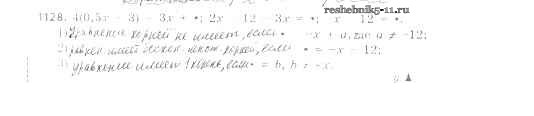 reshebnik5-11.ru
1128. 4(0,5x - 3) - 3x + •; 2x - 12 - 3x = •; -x - 12 = •.
1) Уравнение корней не имеет, если • = -x + a, где a ≠ -12;
2) имеет корней, если • = -x - 12;
3) уравнение имеет 1 корень, если • = b, b ≠ -x.